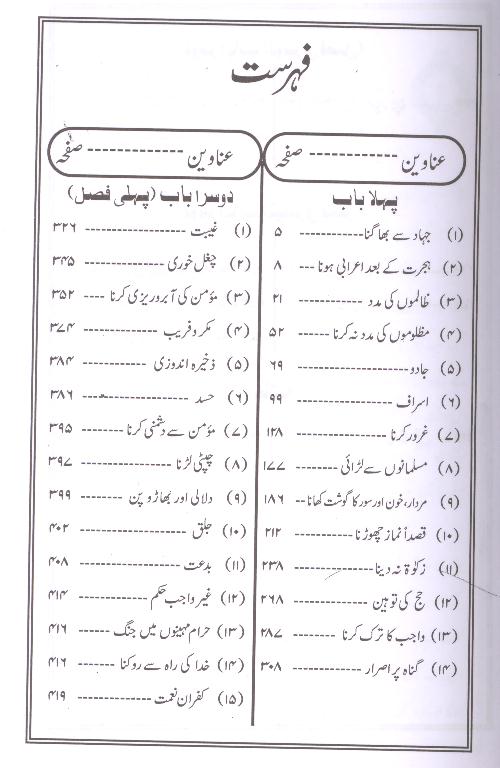 فہرست
عناوین ------------ صفحہ
پہلا باب
(۱) جہاد سے بھاگنا ------------ ۵
(۲) ہجرت کے بعد اعرابی ہونا --- ۸
(۳) ظالموں کی مدد ------------ ۲۱
(۴) مظلوموں کی مدد نہ کرنا ------ ۵۲
(۵) جادو ------------ ۶۹
(۶) اسراف ------------ ۹۹
(۷) غرور کرنا ------------ ۱۲۸
(۸) مسلمانوں سے لڑائی -------- ۱۷۷
(۹) مردار، خون اور سور کا گوشت کھانا -- ۱۸۶
(۱۰) قصداً نماز چھوڑنا -------- ۲۱۲
(۱۱) زکوٰۃ نہ دینا ------------ ۲۳۸
(۱۲) حج کی توہین ------------ ۲۶۸
(۱۳) واجب کا ترک کرنا -------- ۲۸۷
(۱۴) گناہ پر اصرار -------- ۳۰۸
عناوین ------------ صفحہ
دوسرا باب (پہلی فصل)
(۱) غیبت ------------ ۳۲۶
(۲) چغل خوری ------------ ۳۴۵
(۳) مؤمن کی آبروریزی کرنا ---- ۳۵۲
(۴) مکر و فریب ------------ ۳۷۴
(۵) ذخیرہ اندوزی ------------ ۳۸۴
(۶) حسد ------------ ۳۸۶
(۷) مؤمن سے دشمنی کرنا ------ ۳۹۵
(۸) چپٹی لڑنا ------------ ۳۹۷
(۹) دلالی اور بھاڑو پن -------- ۳۹۹
(۱۰) جلق ------------ ۴۰۲
(۱۱) بدعت ------------ ۴۰۸
(۱۲) غیر واجب حکم ------------ ۴۱۴
(۱۳) حرام مہینوں میں جنگ ------ ۴۱۶
(۱۴) خدا کی راہ سے روکنا ------ ۴۱۶
(۱۵) کفران نعمت ------------ ۴۱۹